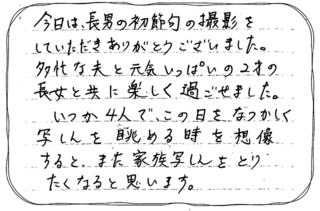 今日は、長男の初節句の撮影を
していただきありがとうございました。
多忙な夫と元気いっぱいの2才の
長女と共に楽しく過ごせました。
いつか4人で、この日をなつかしく
写しんを眺める時を想像
すると、また家族写しんをとり
たくなると思います。